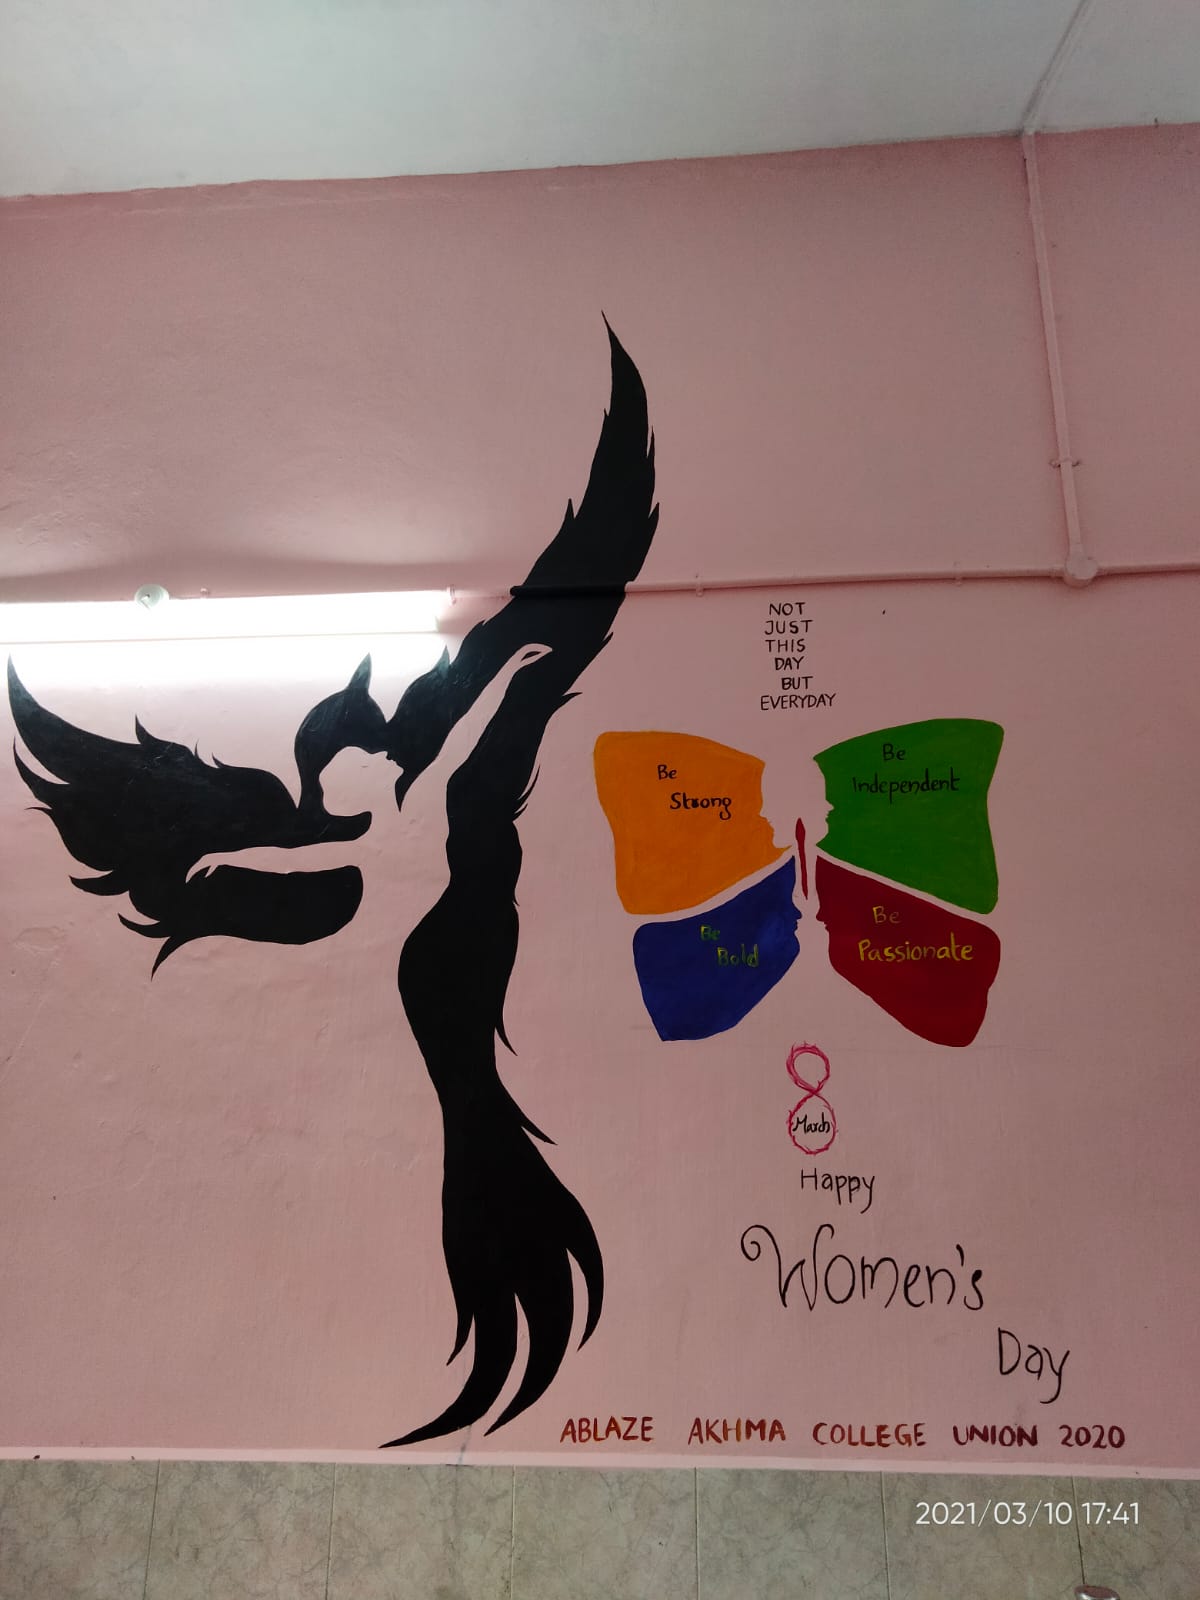 NOT
JUST
THIS
DAY
BUT
EVERYDAY
Be
Strong
Be
Independent
Be
Bold
Be
Passionate
8
March
Happy
Women's
Day
ABLAZE AKHMA COLLEGE UNION 2020
2021/03/10 17:41